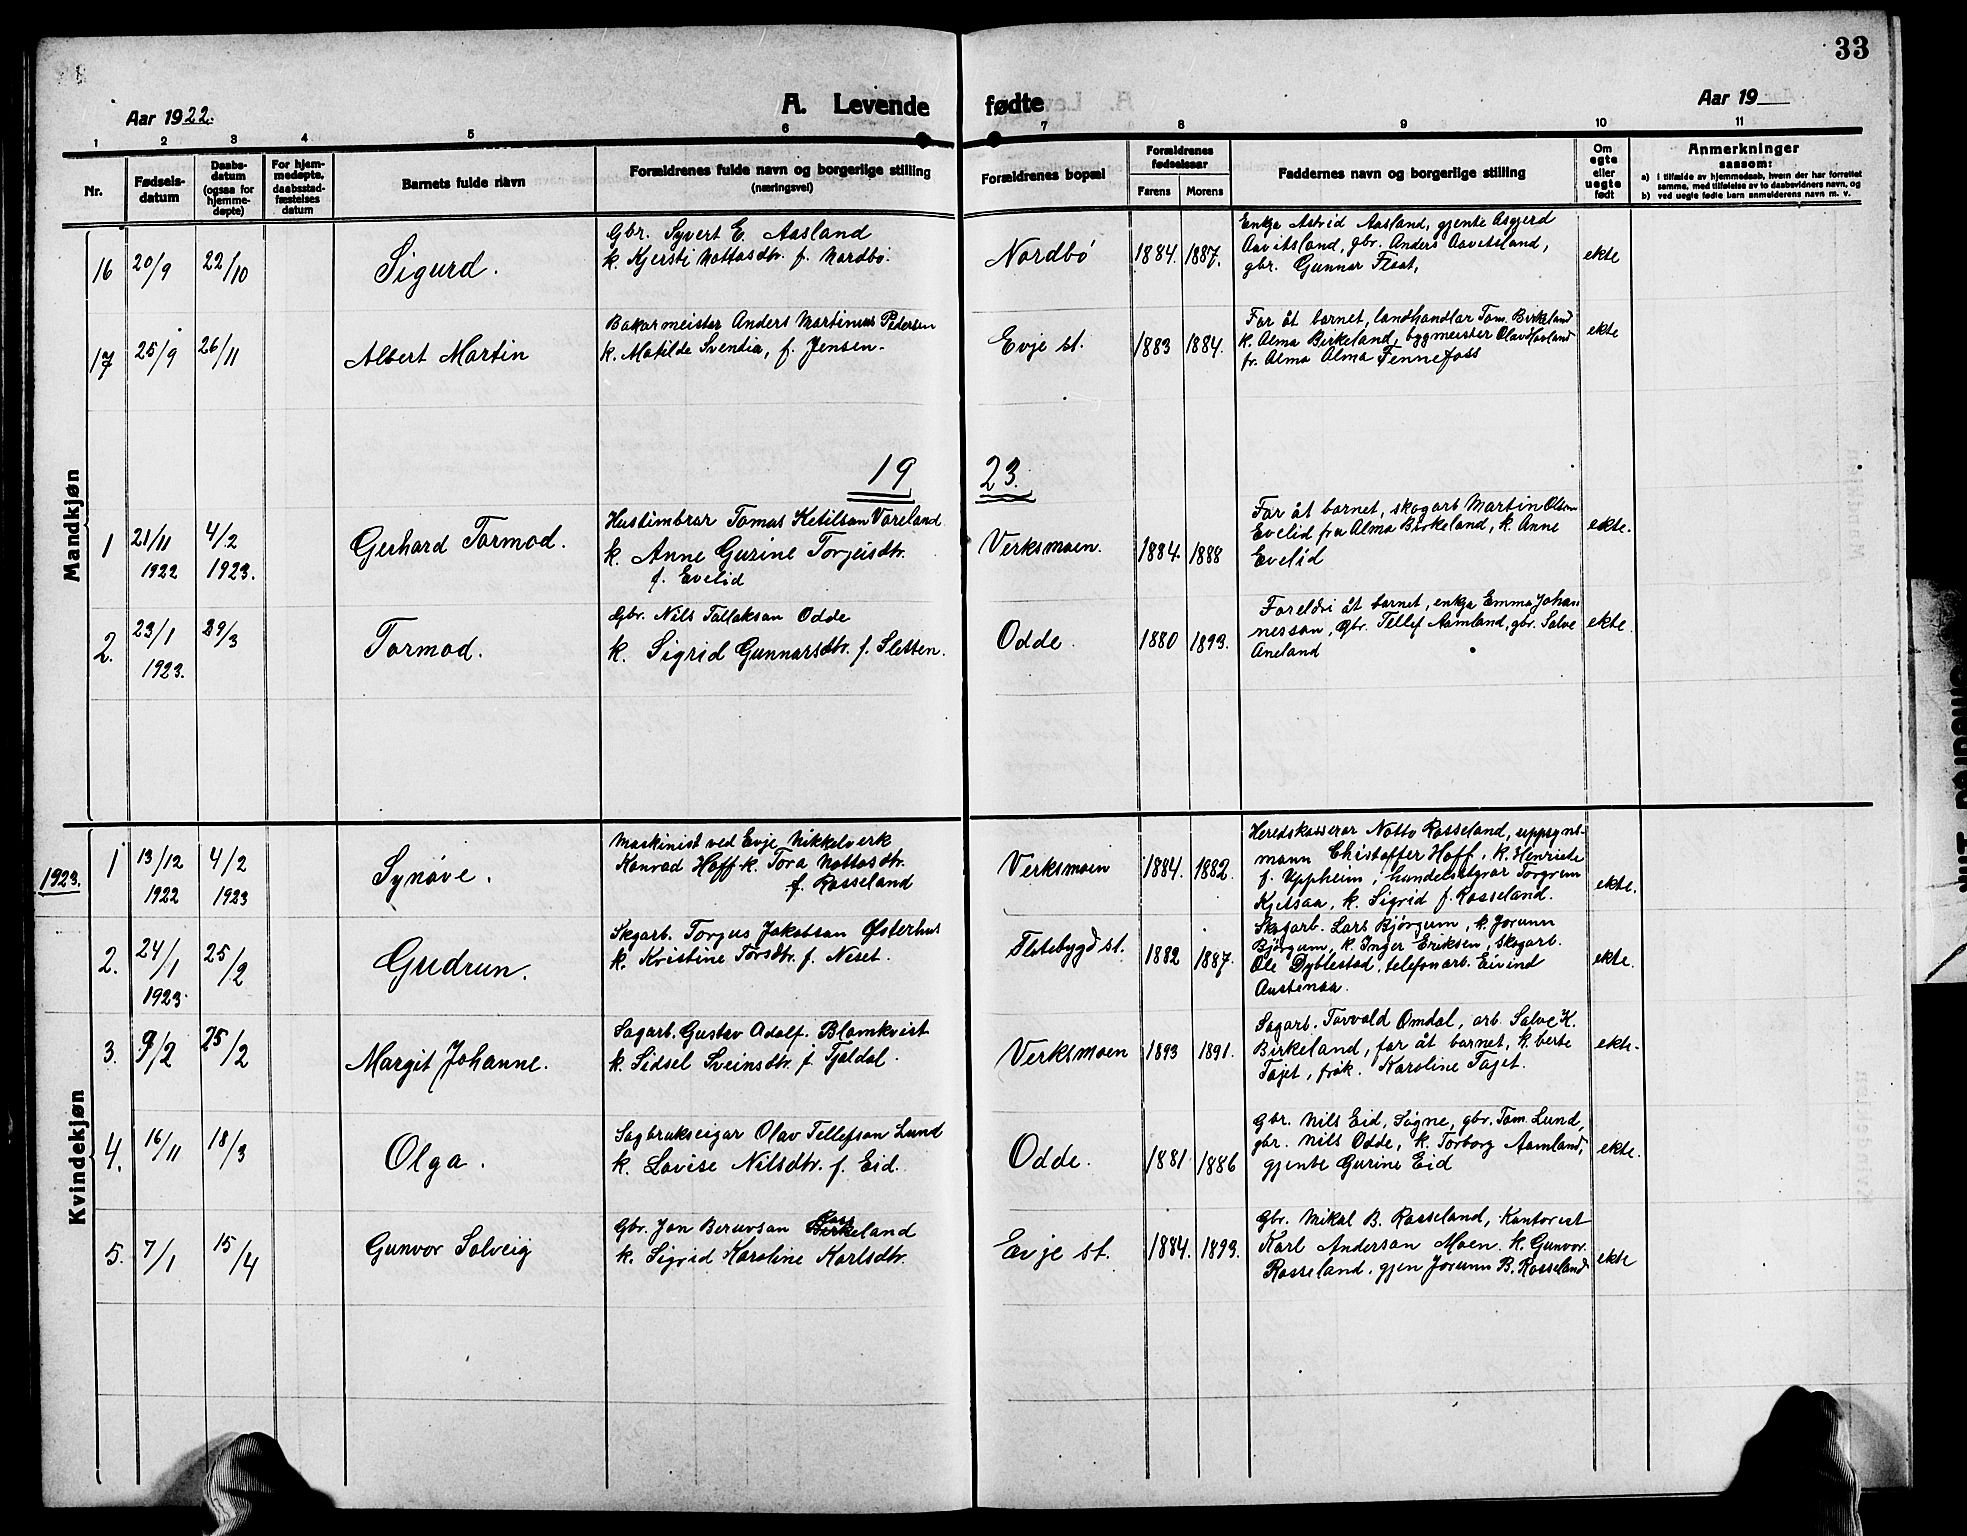 33
Aar 1922.
A. Levende
fødte
Aar 19
1 2 3 4 5 6 7 8 9 10 11
Nr.
Fødsels-
datum
Daabs-
datum
(ogsaa for
hjemme-
døpte)
For hjem-
medøpte,
daabsstad-
fæstelses
datum
Barnets fulde navn
Forældrenes fulde navn og borgerlige stilling
(næringsvei)
Forældrenes bopæl
Forældrenes
fødselsaar
Farens Morens
Faddernes navn og borgerlige stilling
Om
egte
eller
uegte
født
Anmerkninger
saasom:
a) i tilfælde av hjemmedaab, hvem der har forrettet
samme, med tilføielse av to daabsvidners navn, og
b) ved uegte fødte barn anmelderens navn m. v.
Mandkjøn
16 20/9 22/10 Sigurd.
Gbr. Syvert E. Aasland
k. Kjersti Nottosdtr. f. Nordbø.
Nordbö 1884. 1887.
Enkja Astrid Aasland, gjente Asgjerd
Aavitsland, gbr. Anders Aavitsland,
gbr. Gunnar Flaat,
ekte
17 25/9 26/11 Albert Martin
Bakarmeister Anders Martinius Pedersen
k. Matilde Svendia, f. Jensen.
Evje st. 1883 1884.
Far åt barnet, landhandlar Tom. Birkeland
k. Alma Birkeland, bygmeister Olav Hovland
fr. Alma Alma Fennefoss
ekte
19 23.
1 21/11 1922 4/2 1923. Gerhard Tormod.
Hustimbrar Tomas Ketilson Vareland
k. Anne Gurine Torjeisdtr.
f. Evelid
Verksmoen. 1884. 1888
Far åt barnet, skogarb Martin Olsen
Evelid fru Alma Birkeland, k. Anne
Evelid
ekte.
2. 23/1 1923. 29/3 Tormod.
Gbr. Nils Tallakson Odde
k. Sigrid Gunnarsdtr. f. Sletten.
Odde. 1880 1893.
Foreldri åt barnet, enkja Emma Johan
nesson, Gbr. Tellef Aamland, gbr. Salve
Aneland
ekte.
Kvindekjøn
1923.
1 13/12 1922 4/2 1923 Synøve.
Maskinist ved Evje Nikkelverk
Konrad Hoff. k. Tora Nottosdtr.
f. Rosseland
Verksmoen 1884. 1882.
Heredskasserar Notto Rosseland, uppsyns-
mann Christoffer Hoff, k. Henriete
f. Uppheim, handelsstyrar Torgrim
Kjetsaa, k. Sigrid f. Rosseland.
ekte.
2. 24/1 1923. 25/2 Gudrun.
Skgarb. Torjus Jakobson Østerhus
k. Kristine Torsdtr. f. Neset.
Flatebygd st. 1882 1887.
Skogarb. Lars Bjørgum, k. Jorunn
Bjørgum, k. Inger Eriksen, skogarb.
Ole Dyblestad, telefonarb. Eivind
Austenaa.
ekte.
3. 9/2 25/2 Margit Johanne.
Sagarb. Gustav Adolf. Blomkvist
k. Sidsel Sveinsdtr. f. Fjeldal.
Verksmoen 1893 1891.
Sagarb. Torvald Omdal, arb. Salve K.
Birkeland, far åt barnet, k. berte
Tajet, frøk. Karoline Tajet.
ekte.
4. 16/11 18/3 Olga.
Sagbrukseigar Olav Tellefson Lund
k. Lovise Nilsdtr. f. Eid.
Odde. 1881 1886
Gbr. Nils Eid, Søgne, gbr. Tom. Lund,
gbr. Nils Odde, k. Torborg Aamland,
gjente Gurine Eid
ekte.
5. 7/1 15/4 Gunvor Solveig
Gbr. Jon Beruvson Rosseland
k. Sigrid Karoline Karlsdtr.
Evje st. 1884. 1893.
Gbr. Mikal B. Rosseland, Kantorist
Karl Anderson Moen. k. Gunvor.
Rosseland, gjen Jorunn B. Rosseland
ekte